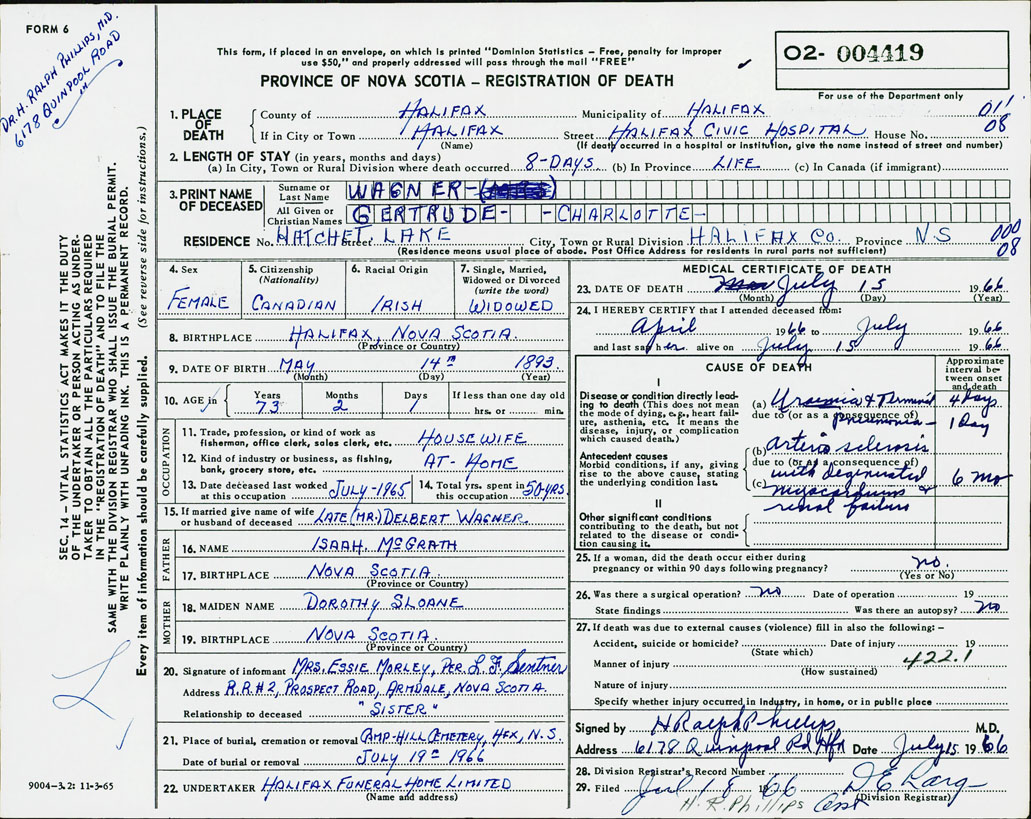 FORM 6
DR. H. RALPH PHILLIPS, M.D.
6178 QUINPOOL ROAD
This form, if placed in an envelope, on which is printed "Dominion Statistics – Free, penalty for improper
use $50," and properly addressed will pass through the mail "FREE"
PROVINCE OF NOVA SCOTIA – REGISTRATION OF DEATH
O2- 004419
For use of the Department only
SEC. 14 – VITAL STATISTICS ACT MAKES IT THE DUTY
OF THE UNDERTAKER OR PERSON ACTING AS UNDER-
TAKER TO OBTAIN ALL THE PARTICULARS REQUIRED
IN THE "REGISTRATION OF DEATH" AND TO FILE THE
SAME WITH THE DIVISION REGISTRAR WHO SHALL ISSUE THE BURIAL PERMIT.
WRITE PLAINLY WITH UNFADING INK. THIS IS A PERMANENT RECORD.
Every item of information should be carefully supplied. (See reverse side for instructions.)
1. PLACE OF DEATH County of HALIFAX Municipality of HALIFAX 011
If in City or Town HALIFAX Street HALIFAX CIVIC HOSPITAL House No. 08
(Name) (If death occurred in a hospital or institution, give the name instead of street and number)
2. LENGTH OF STAY (in years, months and days)
(a) In City, Town or Rural Division where death occurred 8-DAYS. (b) In Province LIFE (c) In Canada (if immigrant)
3. PRINT NAME OF DECEASED Surname or Last Name WAGNER-
All Given or Christian Names GERTRUDE- -CHARLOTTE-
RESIDENCE No. HATCHET LAKE Street City, Town or Rural Division HALIFAX CO. Province NS 000
(Residence means usual place of abode. Post Office Address for residents in rural parts not sufficient) 08
4. Sex FEMALE
5. Citizenship (Nationality) CANADIAN
6. Racial Origin IRISH
7. Single, Married, Widowed or Divorced (write the word) WIDOWED
8. BIRTHPLACE HALIFAX, NOVA SCOTIA.
(Province or Country)
9. DATE OF BIRTH MAY 14TH 1893
(Month) (Day) (Year)
10. AGE in Years 73 Months 2 Days 1 If less than one day old hrs. or min.
OCCUPATION
11. Trade, profession, or kind of work as fisherman, office clerk, sales clerk, etc. HOUSEWIFE
12. Kind of industry or business, as fishing, bank, grocery store, etc. AT-HOME
13. Date deceased last worked at this occupation JULY-1965
14. Total yrs. spent in this occupation 50-YRS.
15. If married give name of wife or husband of deceased LATE (MR.) DELBERT WAGNER.
FATHER
16. NAME ISAAH. McGRATH
17. BIRTHPLACE NOVA SCOTIA.
(Province or Country)
MOTHER
18. MAIDEN NAME DOROTHY SLOANE
19. BIRTHPLACE NOVA SCOTIA.
(Province or Country)
20. Signature of informant MRS. ESSIE MORLEY, PER. L. F. Sentner
Address R.R.#2, PROSPECT ROAD, ARMDALE, NOVA SCOTIA.
Relationship to deceased "SISTER"
21. Place of burial, cremation or removal CAMP-HILL CEMETERY, HFX, N.S.
Date of burial or removal JULY 19TH 1966
22. UNDERTAKER HALIFAX FUNERAL HOME LIMITED
(Name and address)
9004–3.2: 11-3-65
MEDICAL CERTIFICATE OF DEATH
23. DATE OF DEATH July 15 1966
(Month) (Day) (Year)
24. I HEREBY CERTIFY that I attended deceased from:
April 1966 to July 1966
and last saw her alive on July 15 1966
CAUSE OF DEATH
Approximate interval between onset and death
I
Disease or condition directly leading to death (This does not mean the mode of dying, e.g., heart failure, asthenia, etc. It means the disease, injury, or complication which caused death.)
(a) Uraemia & Terminal 4 Days
due to (or as a consequence of) pneumonia – 1 Day
Antecedent causes
Morbid conditions, if any, giving rise to the above cause, stating the underlying condition last.
(b) Arterio sclerosis
due to (or as a consequence of)
(c) with degenerated 6 mo
myocardium &
renal failure
II
Other significant conditions contributing to the death, but not related to the disease or condition causing it.
25. If a woman, did the death occur either during pregnancy or within 90 days following pregnancy? no.
(Yes or No)
26. Was there a surgical operation? no Date of operation 19
State findings Was there an autopsy? no
27. If death was due to external causes (violence) fill in also the following: –
Accident, suicide or homicide? Date of injury 19
(State which) 422.1
Manner of injury
(How sustained)
Nature of injury
Specify whether injury occurred in industry, in home, or in public place
Signed by H Ralph Phillips M.D.
Address 6178 Quinpool Rd Hfx Date July 15 1966
28. Division Registrar's Record Number
29. Filed Jul 18 1966
(Division Registrar)
H. R. Phillips